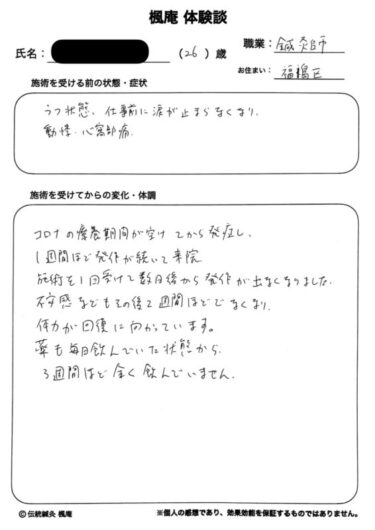 楓庵 体験談
氏名： （26）歳
職業： 鍼灸師
お住まい： 福島区
施術を受ける前の状態・症状
うつ状態、仕事前に涙が止まらなくなり、
動悸、心窩部痛、
施術を受けてからの変化・体調
コロナの療養期間が空けてから発症し、
1週間ほど発作が続いて来院
施術を1回受けて数日後から発作が出なくなりました。
不安感などもその後2週間ほどでなくなり、
体力が回復に向かっています。
薬も毎日飲んでいた状態から、
3週間ほど全く飲んでいません。
© 伝統鍼灸 楓庵
※個人の感想であり、効果効能を保証するものではありません。